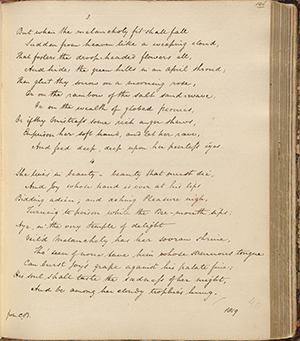 3
But when the melancholy fit shall fall
Sudden from heaven like a weeping cloud,
That fosters the droop-headed flowers all,
And hides the green hills in an april shroud;
Then glut thy sorrow on a morning rose,
Or on the rainbow of the salt sand-wave,
Or on the wealth of globed peonies,
Or if thy mistress some rich anger shows,
Imprison her soft hand, and let her rave,
And feed deep, deep upon her peerless eyes
4
She in Beauty – Beauty that must die,
And Joy whose hand is ever at his lips
Bidding adieu; and aching Pleasure nigh,
Turning to poison while the Bee-mouth sips;
Aye, in the very temple of delight
Veild Melancholy has her sovran shrine,
Tho' seen of none save him whose strenuous tongue
Can burst Joy's grape against his palate fine;
His soul shall taste the sadness of her might,
And be among her cloudy trophies hung.
1819
from C.B.